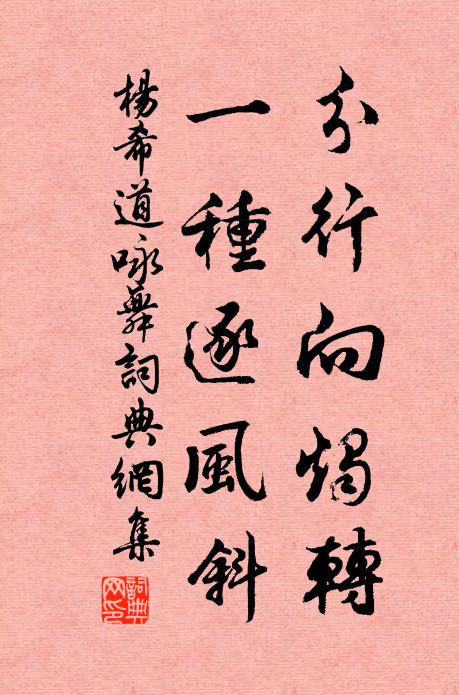 分行向燭轉
一種逐風斜
楊希道詠舞詞典網集
詞典網印